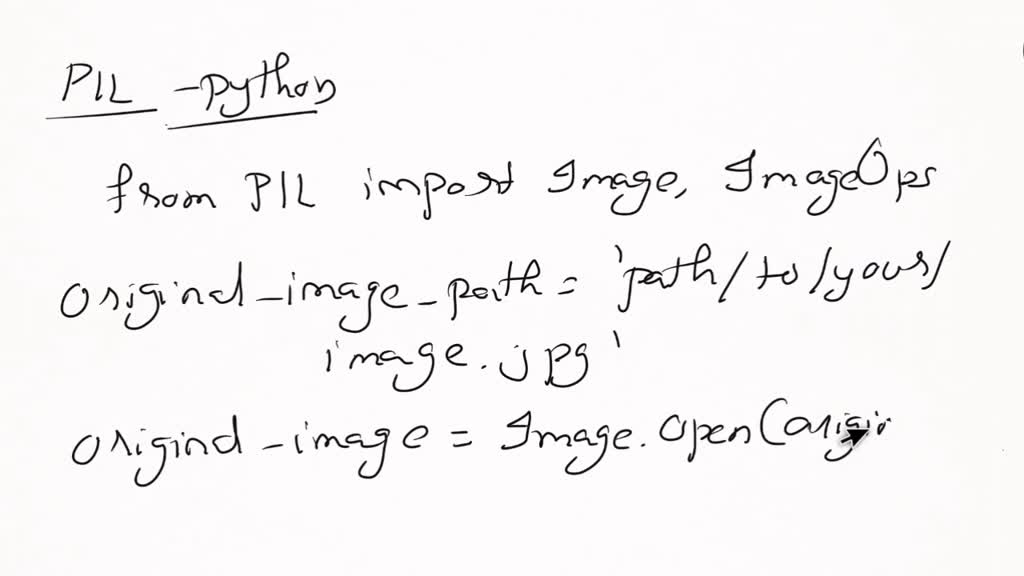 PIL - python
from PIL import Image, ImageOps
original_image_path = 'path/to/your/
image.jpg'
original_image = Image.open(origin